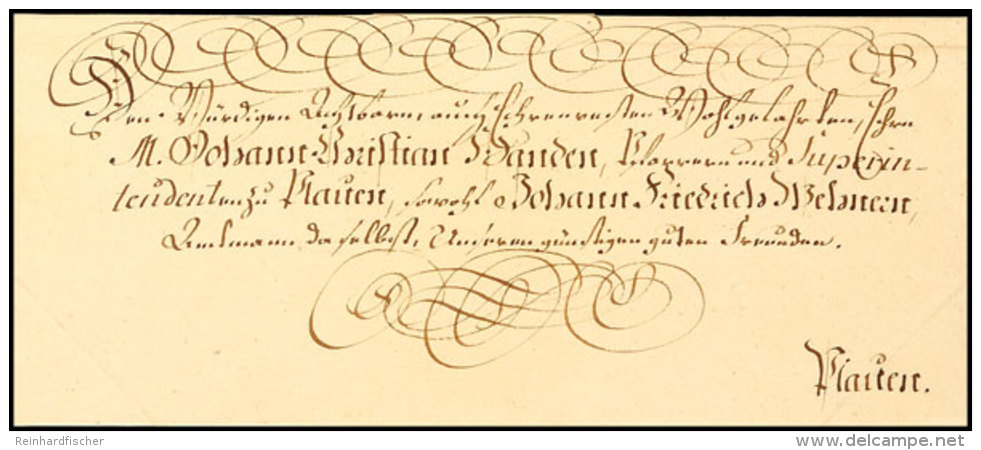 Den Würdigen Achtbarn, auch Ehrenvesten Wohlgelahrten, Ehrn
M. Johann Christian Handen, Pfarrern und Superin-
tendenten zu Plauen, sowohl Johann Friedrich Wehnern,
Amtmann daselbst, Unseren günstigen guten Freunden.
Plauen.
Reinhardfischer
www.delcampe.net